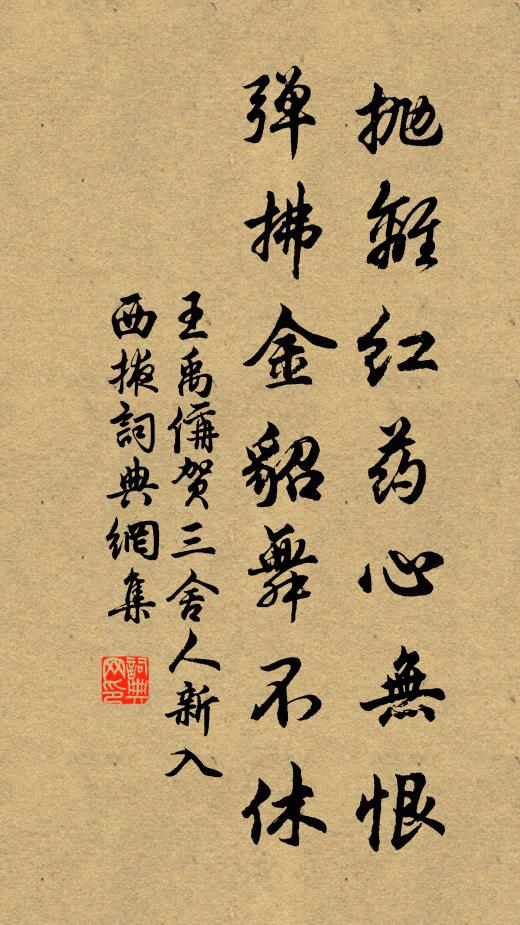 抛離紅药心無恨
弹拂金貂舞不休
王禹偁贺三舍人新入
西掖詞典網集
詞典网印